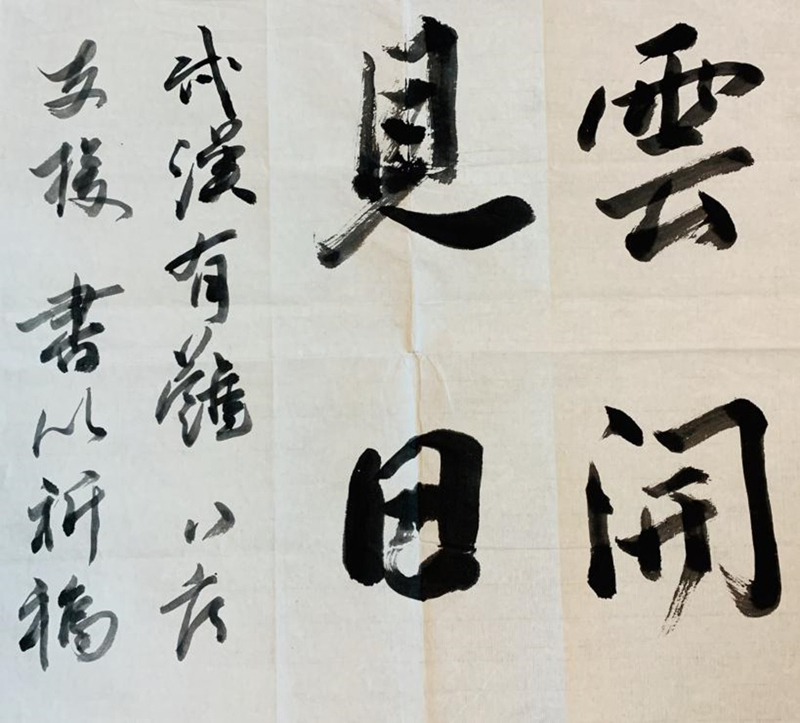 雲開
見日
武漢有難 八方
支援 書以祈福